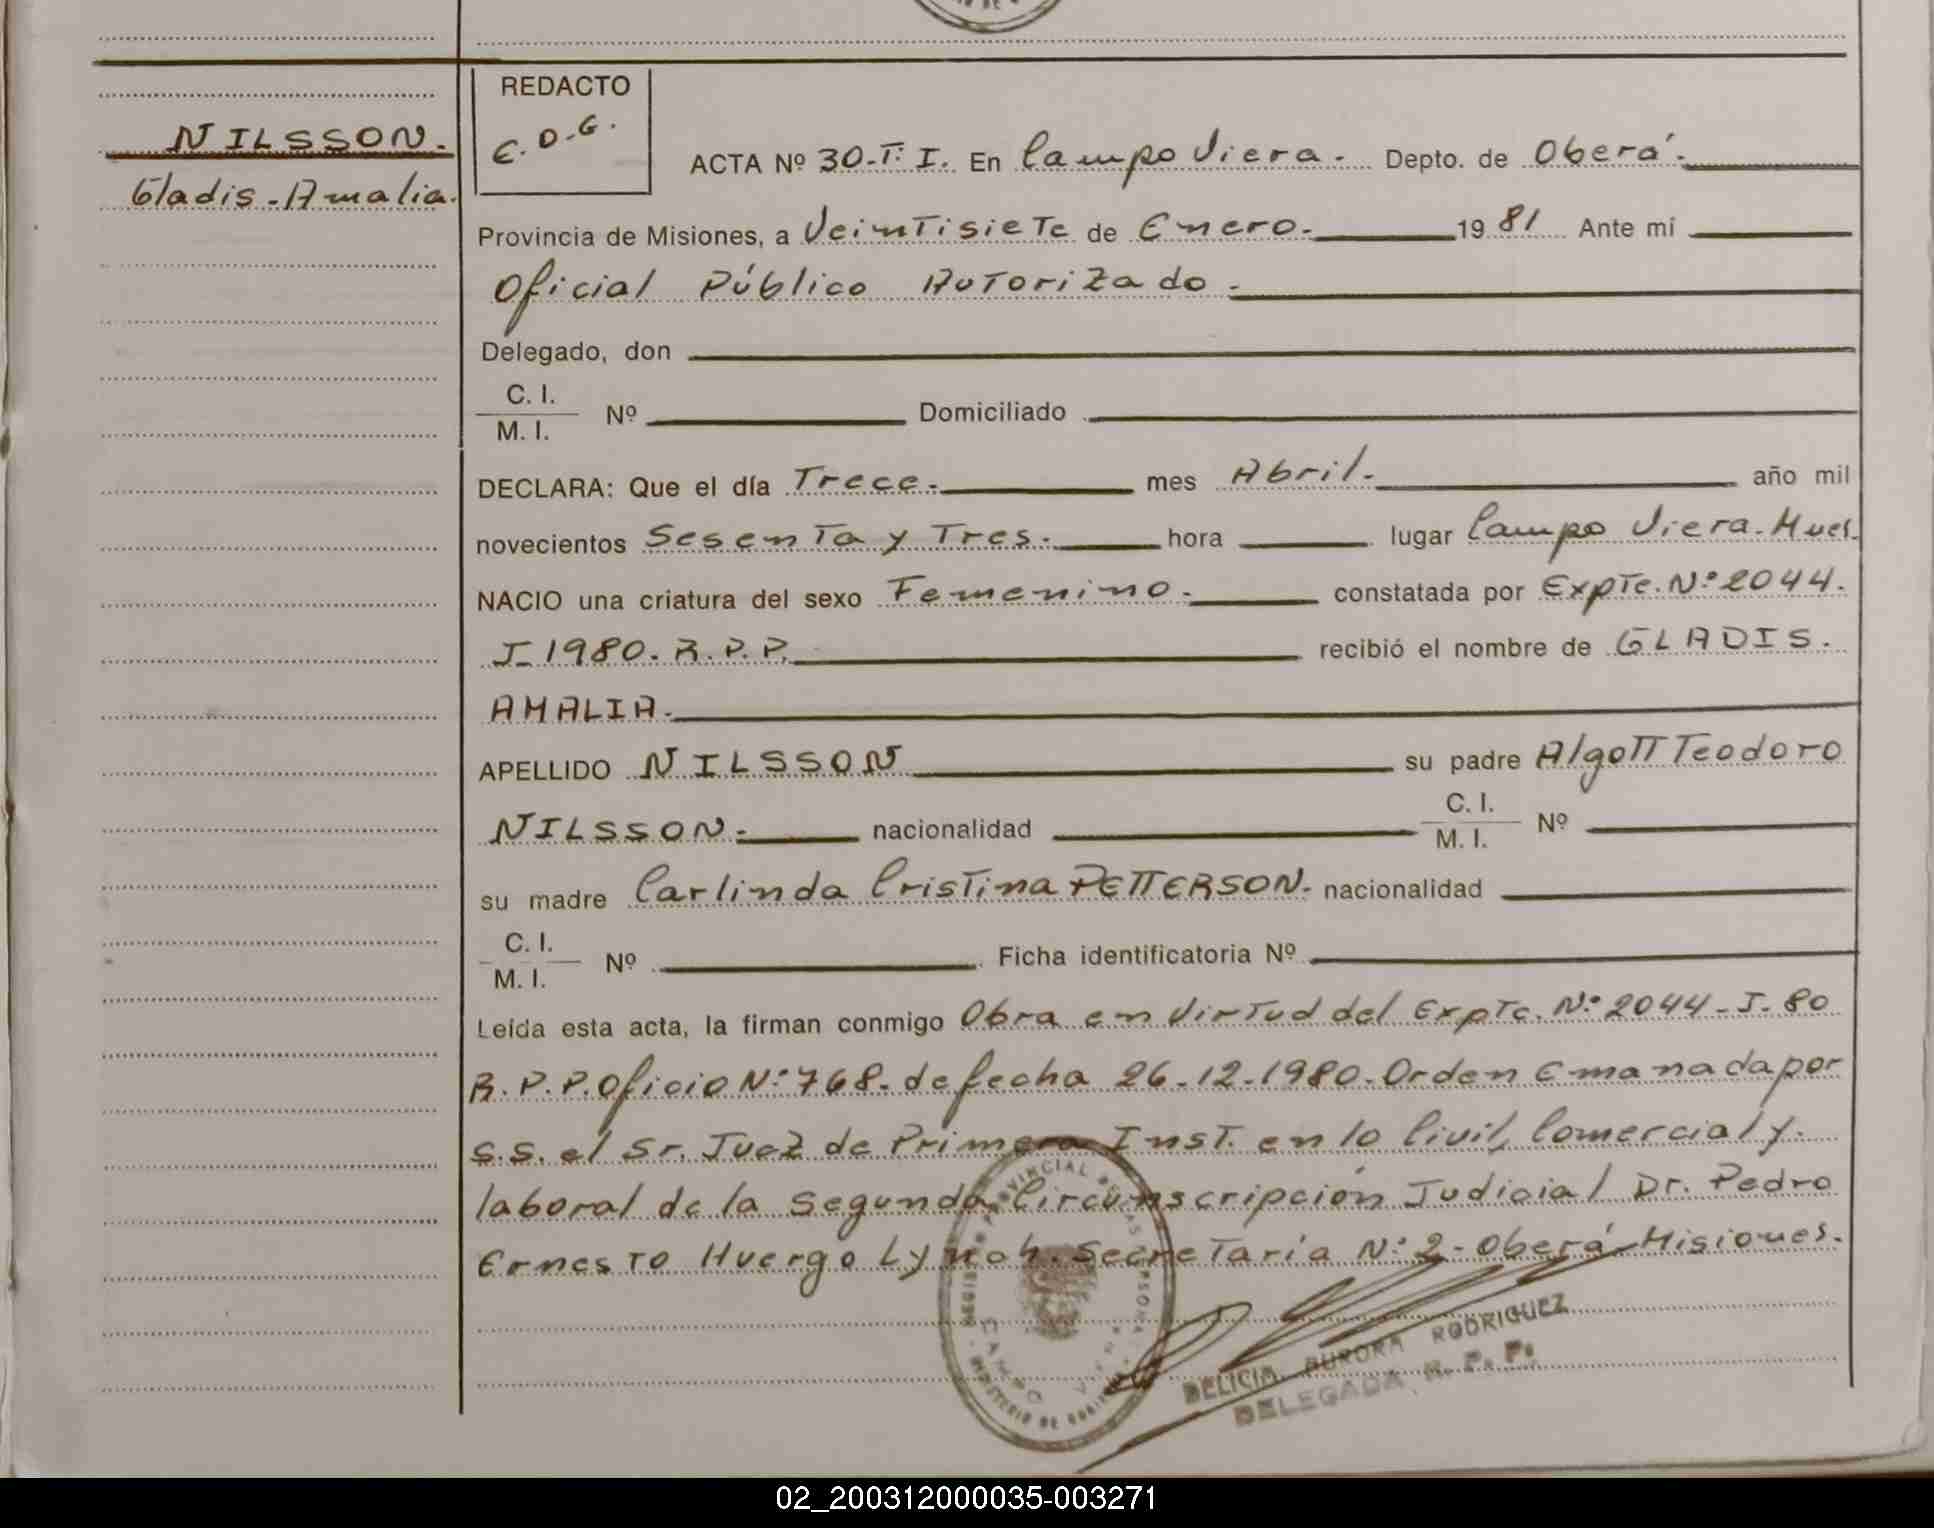 NILSSON.
Gladis-Amalia.
REDACTO
C.D.G.
ACTA Nº 30-T: I. En Campo Viera. Depto. de Oberá.
Provincia de Misiones, a Veintisiete de Enero. 1981 Ante mí
Oficial Público Autorizado.
Delegado, don
C. I.
M. I. Nº Domiciliado
DECLARA: Que el día Trece. mes Abril. año mil
novecientos Sesenta y Tres. hora lugar Campo Viera. Mnes.
NACIO una criatura del sexo Femenino. constatada por Expte. Nº 2044.
J-1980. R.P.P. recibió el nombre de GLADIS.
AMALIA.
APELLIDO NILSSON su padre Algott Teodoro
NILSSON. nacionalidad C. I. M. I. Nº
su madre Carlinda Cristina PETTERSON. nacionalidad
C. I.
M. I. Nº Ficha identificatoria Nº
Leída esta acta, la firman conmigo Obra en virtud del Expte. Nº 2044-J-80
R.P.P. Oficio Nº 768. de fecha 26-12-1980. Orden Emanada por
S.S. el Sr. Juez de Primera Inst. en lo Civil, Comercial y.
laboral de la Segunda Circunscripción Judicial Dr. Pedro
Ernesto Huergo Lynch. Secretaría Nº 2-Oberá-Misiones.
DELICIA AURORA RODRIGUEZ
DELEGADA R. P. P.
02_200312000035-003271